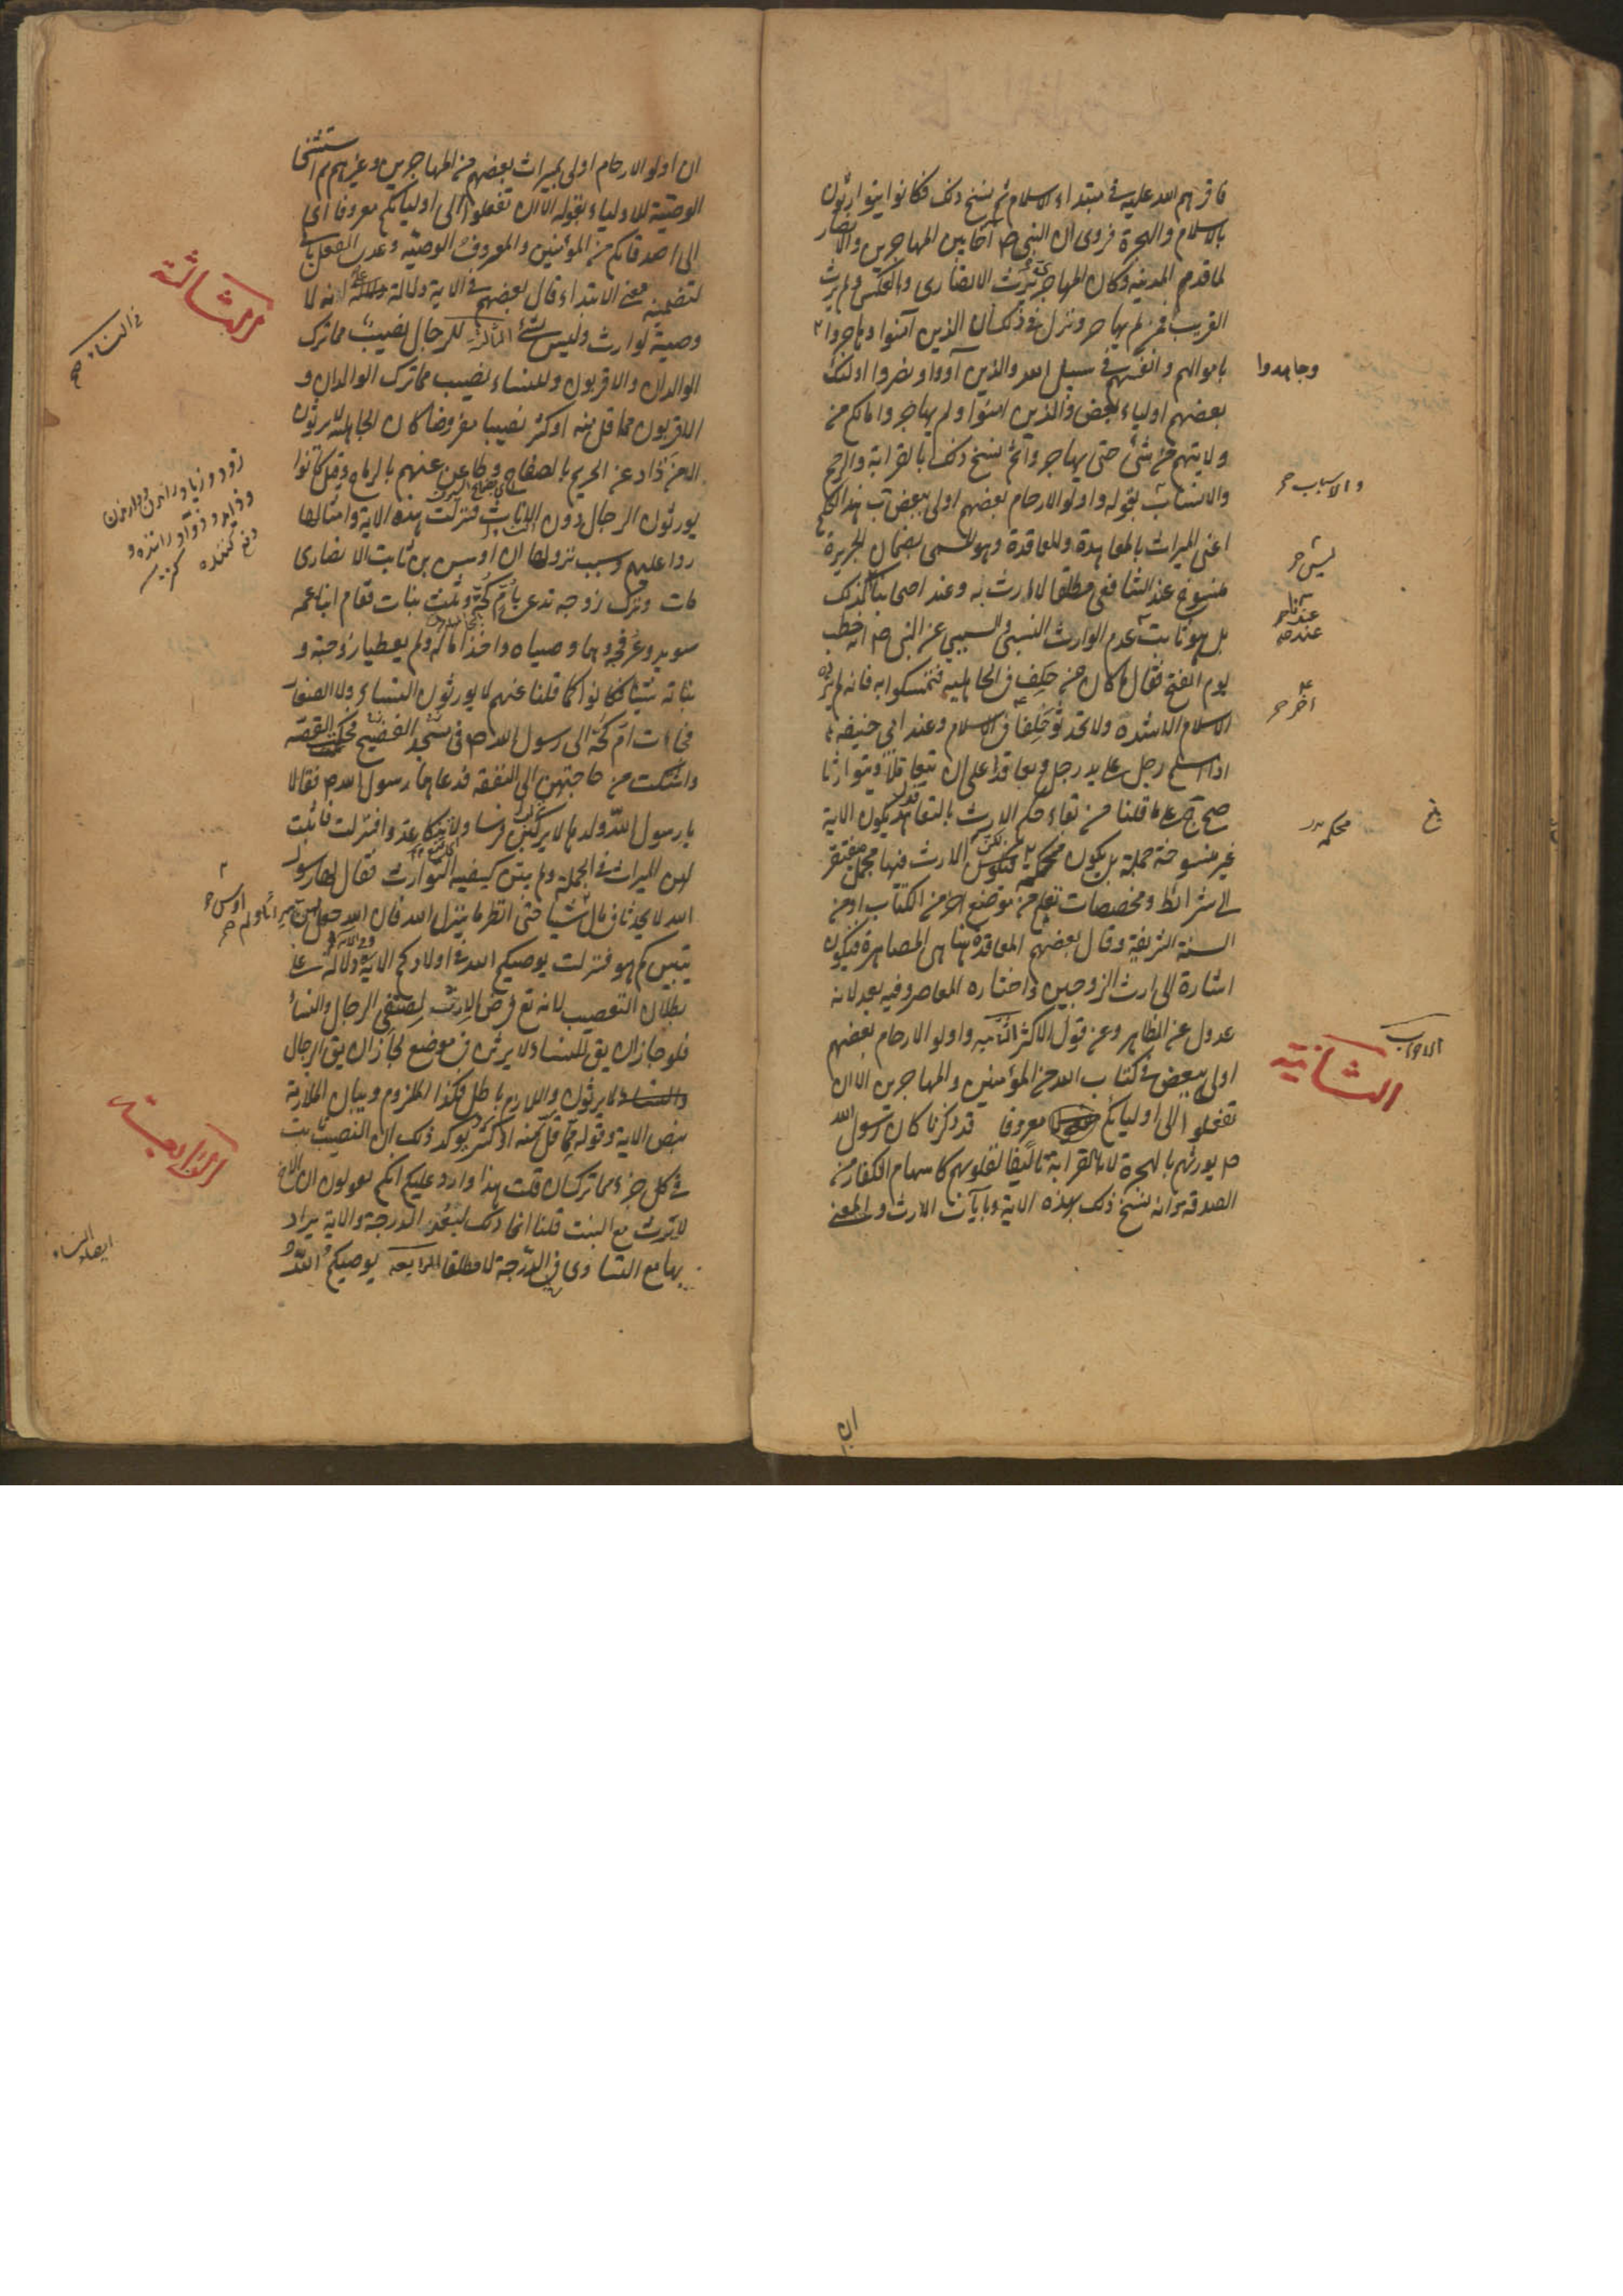 فاقرهم الله عليه في مبتداء الاسلام ثم نسخ ذلك فكانوا يتوارثون
بالاسلام والهجرة فروى ان النبي ص آخا بين المهاجرين والانصار
لما قدم المدينة وكان المهاجر يرث الانصارى وبالعكس ولم يرث
القريب ممن لم يهاجر ونزل في ذلك ان الذين آمنوا وهاجروا
وجاهدوا
باموالهم وانفسهم في سبيل الله والذين آووا ونصروا اولئك
بعضهم اولياء بعض والذين امنوا ولم يهاجروا مالكم من
ولايتهم من شئ حتى يهاجروا ثم نسخ ذلك بالقرابة والرحم
والانساب بقوله واولو الارحام بعضهم اولى ببعض
والاسباب
اعنى الميراث بالمعاهدة والمعاقدة وهو المسمى بضمان الجريرة
منسوخ عند الشافعى مطلقا لا ارث به وعند اصحابنا كذلك
ليس
بل هو ثابت عدم الوارث النسبى والسببي عن النبى ص انه خطب
عند
يوم الفتح فقال ما كان من حلف في الجاهلية فتمسكوا به فانه لم يزده
الاسلام الا شدة ولا تحدثوا حلفا في الاسلام وعند ابى حنيفة
اذا اسلم رجل على يد رجل وتعاقدا على ان يتعاقلا ويتوارثا
صح على ما قلنا من بقاء حكم الارث بالتعاقد يكون الاية
غير منسوخة جملة بل يكون محكمة الارث فيها مجمل مفتقر
محكمه
الى شرائط ومخصصات تعلم من موضع اخر من الكتاب او من
السنة الشريفة وقال بعضهم المعاقدة هنا هى المصاهرة فيكون
اشارة الى ارث الزوجين واختاره المعاصر وفيه بعد لانه
عدول عن الظاهر وعن قول الاكثر الثانية واولو الارحام بعضهم
الثانية
الاحزاب
اولى ببعض في كتاب الله من المؤمنين والمهاجرين الا ان
تفعلوا الى اوليائكم معروفا قد ذكرنا كان رسول الله
ص يورثهم بالهجرة لا بالقرابة تاليفا لقلوبهم كاسهام الكفار من
الصدقة ثم انه نسخ ذلك بهذه الاية وبآيات الارث والمعنى
ان
ان اولو الارحام اولى بميراث بعضهم من المهاجرين وغيرهم ثم استثنى
الوصية للاولياء بقوله الا ان تفعلوا الى اوليائكم معروفا اى
الى اصدقائكم من المؤمنين والمعروف الوصية وعدى الفعل بالى
لتضمينه معنى الابتداء قال بعضهم في الاية دلالة على انه لا
وصية لوارث وليس بشئ الثالثة للرجال نصيب مما ترك
الثالثة
في النساء
الوالدان والاقربون وللنساء نصيب مما ترك الوالدان و
الاقربون مما قل منه او كثر نصيبا مفروضا كان الجاهلية لا يرثون
الا من ذاد عن الحريم بالصفاح وطاعن عنهم بالرماح وقيل كانوا
يورثون الرجال دون الاناث فنزلت هذه الاية وامثالها
ردا عليهم وسبب نزولها ان اوس بن ثابت الانصارى
مات وترك زوجه تدعى بام كجة وثلث بنات فقام ابنا عمه
سويد وعرفجة وهما وصياه واخذا ماله ولم يعطيا زوجته و
بناته شيئا فكانوا كما قلنا عنهم لا يورثون النساء ولا الصغار
فجاءت ام كجة الى رسول الله ص في مسجد الفضيح فحكت القصة
واشتكت من حاجتهن الى النفقة فدعاهما رسول الله ص فقالا
يا رسول الله ولدها لا يركبن فرسا ولا ينكا عدوا فنزلت فاثبت
لهن الميراث في الجملة ولم يبين كيفية التوارث فقال لهما رسول
الله لا تحدثا في مال شيئا حتى انظر ما ينزل الله فان الله جعل لهن
يتبين كم هو فنزلت يوصيكم الله في اولادكم الاية دلالة على
بطلان التعصيب لانه تع فرض الارث لصنفى الرجال والنساء
فلو جاز ان يق للنساء لا يرثن في موضع لجاز ان يق الرجال
لا يرثون واللازم باطل فكذا الملزوم وبيان الملازمة
بنص الاية وقوله مما قل منه او كثر يوكد ذلك ان النصيب ثابت
في كل جزء مما تركه ان قلت هذا وارد عليكم انكم تقولون ان الاخ
الرابعة
لا يرث مع البنت قلنا انما ذلك لبعد الدرجة والاية يراد
ايضا النساء
بها مع التساوى في الدرجة لا مطلقا الرابعة يوصيكم الله